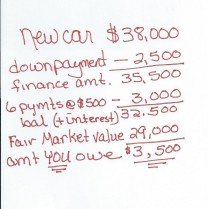 New car $38,000
downpayment - 2,500
finance amt. 35,500
6 pymts @ $500 - 3,000
bal (+ interest) 32,500
Fair Market value 29,000
amt you owe $3,500